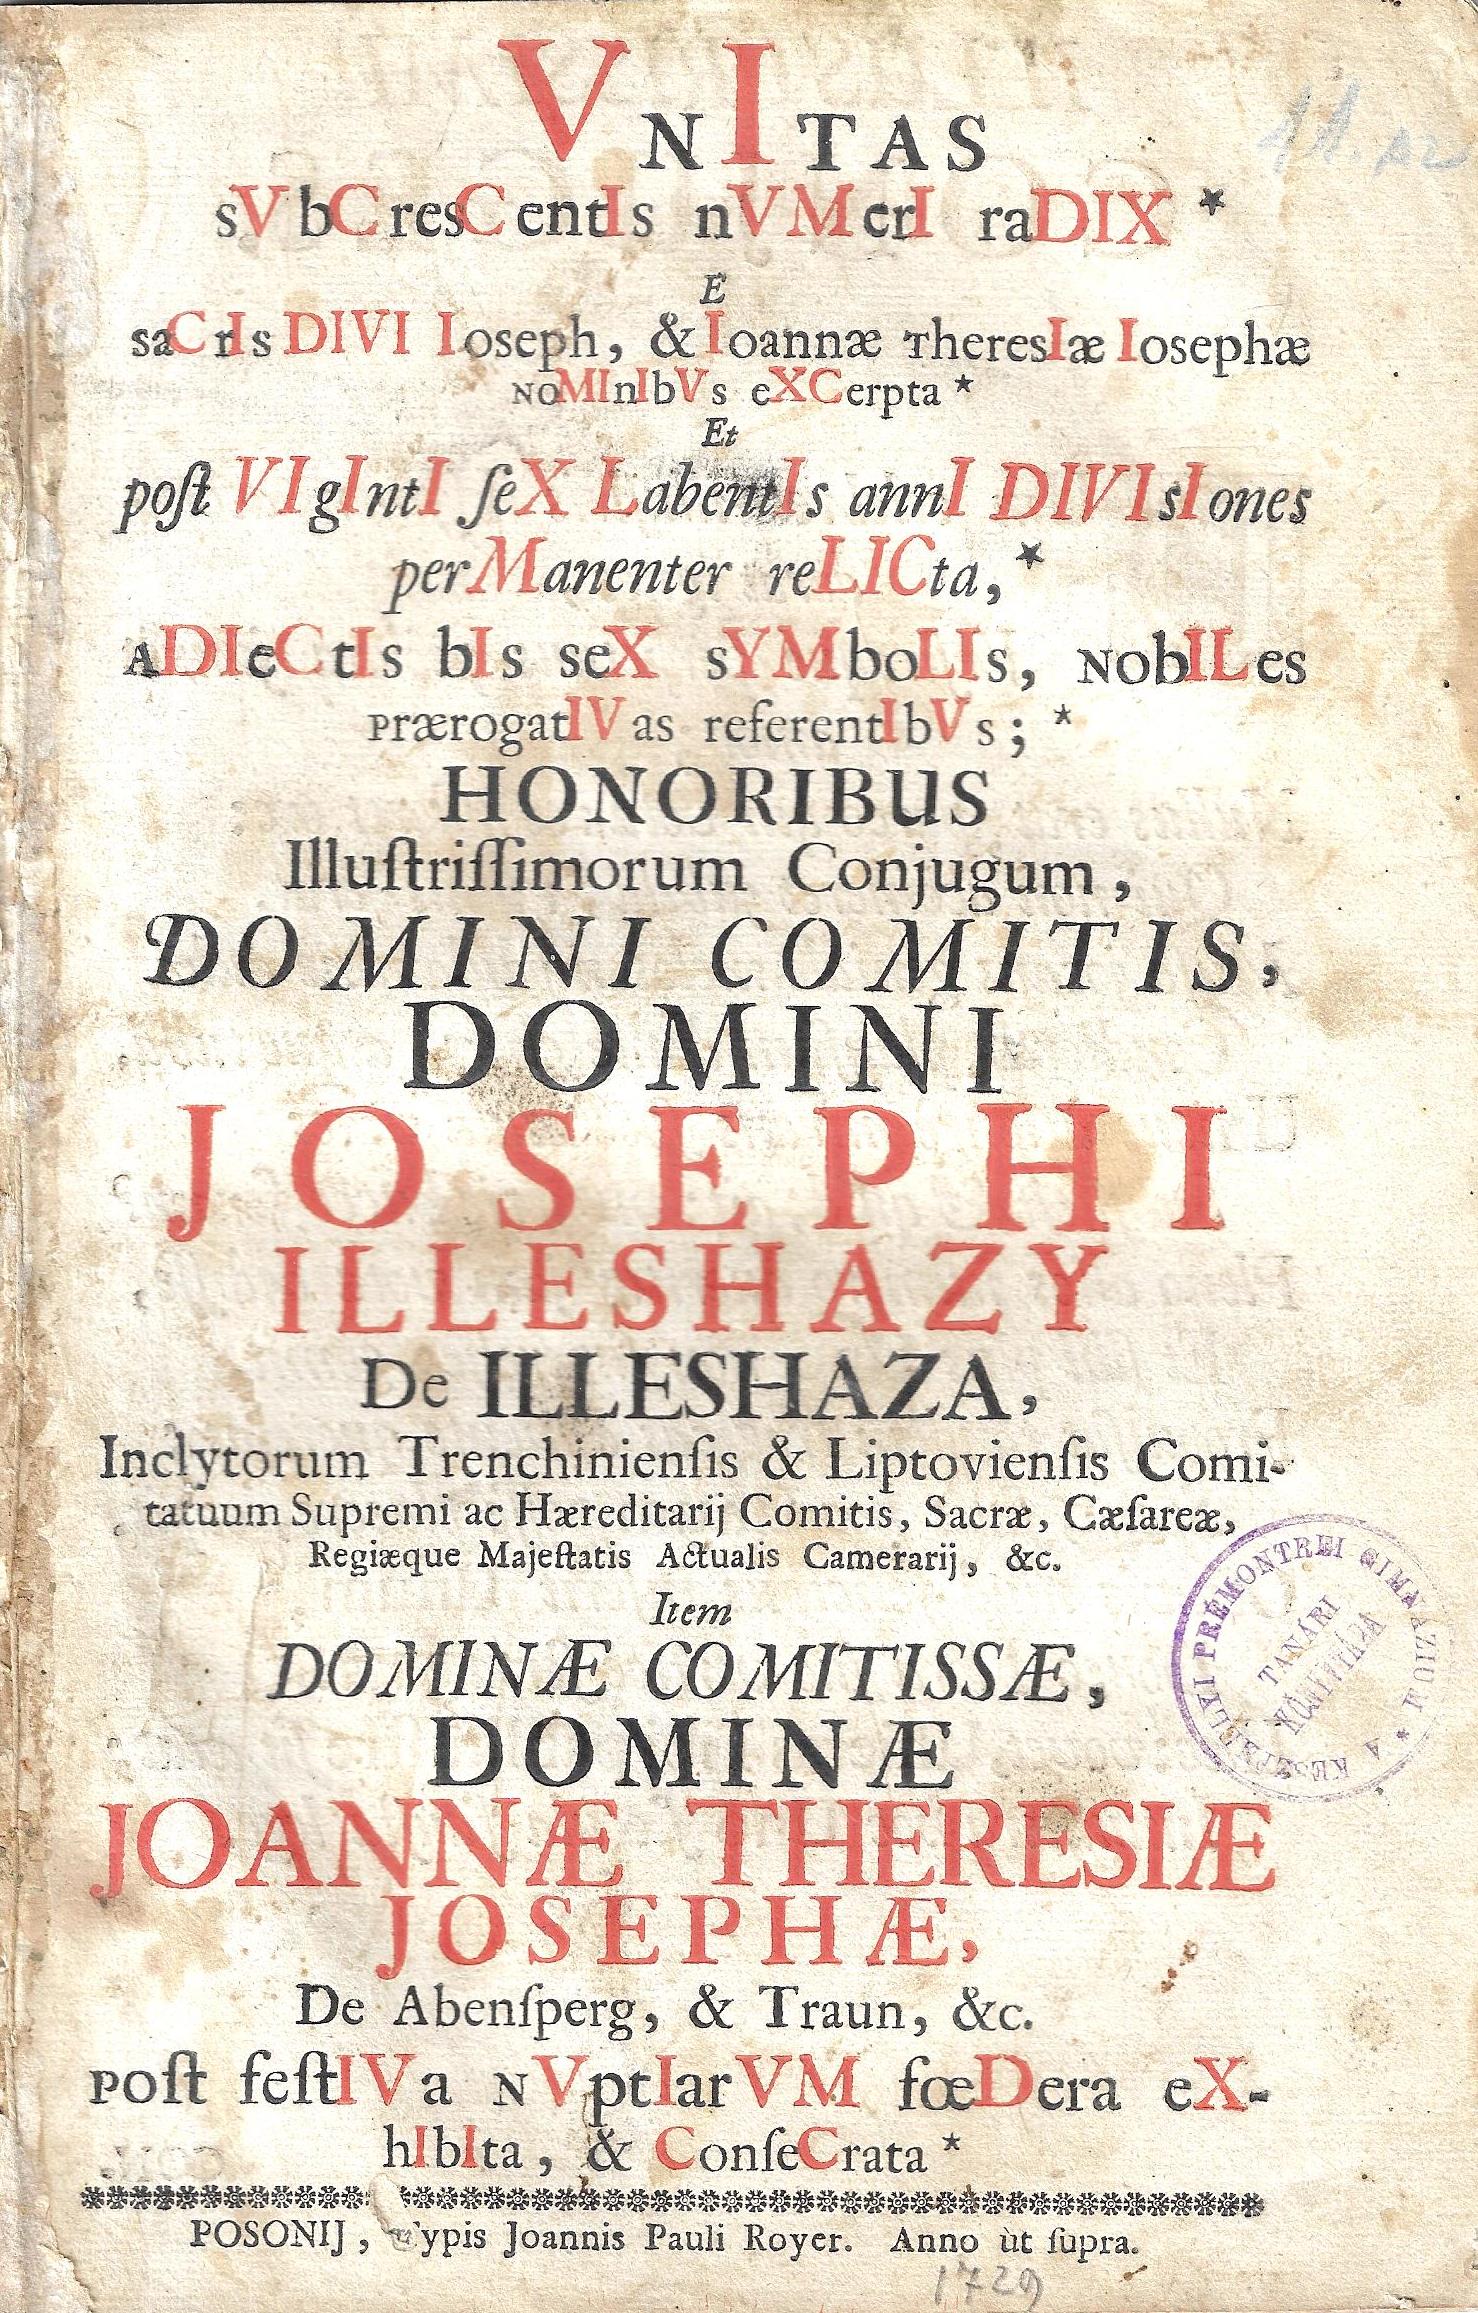 VNITAS
sVbCresCentIs nVMerI raDIX *
E
saCrIs DIVI Ioseph, & Ioannæ TheresIæ Iosephæ
NoMInIbVs eXCerpta *
Et
poſt VIgIntI ſeX LabentIs annI DIVIsIones
perManenter reLICta, *
ADIeCtIs bIs seX sYMboLIs, NobILes
PrærogatIVas referentIbVs; *
HONORIBUS
Illuſtriſſimorum Conjugum,
DOMINI COMITIS,
DOMINI
JOSEPHI
ILLESHAZY
De ILLESHAZA,
Inclytorum Trenchinienſis & Liptovienſis Comi-
tatuum Supremi ac Hæreditarij Comitis, Sacræ, Cæſareæ,
Regiæque Majeſtatis Actualis Camerarij, &c.
Item
DOMINÆ COMITISSÆ,
DOMINÆ
JOANNÆ THERESIÆ
JOSEPHÆ,
De Abenſperg, & Traun, &c.
Poſt feſtIVa NVptIarVM fœDera eX-
hIbIta, & ConſeCrata *
POSONIJ, Typis Joannis Pauli Royer. Anno ùt ſupra.
1729
A KESZTHELYI PRÉMONTREI GIMNÁZIUM *
TANÁRI
KÖNYVTÁRA